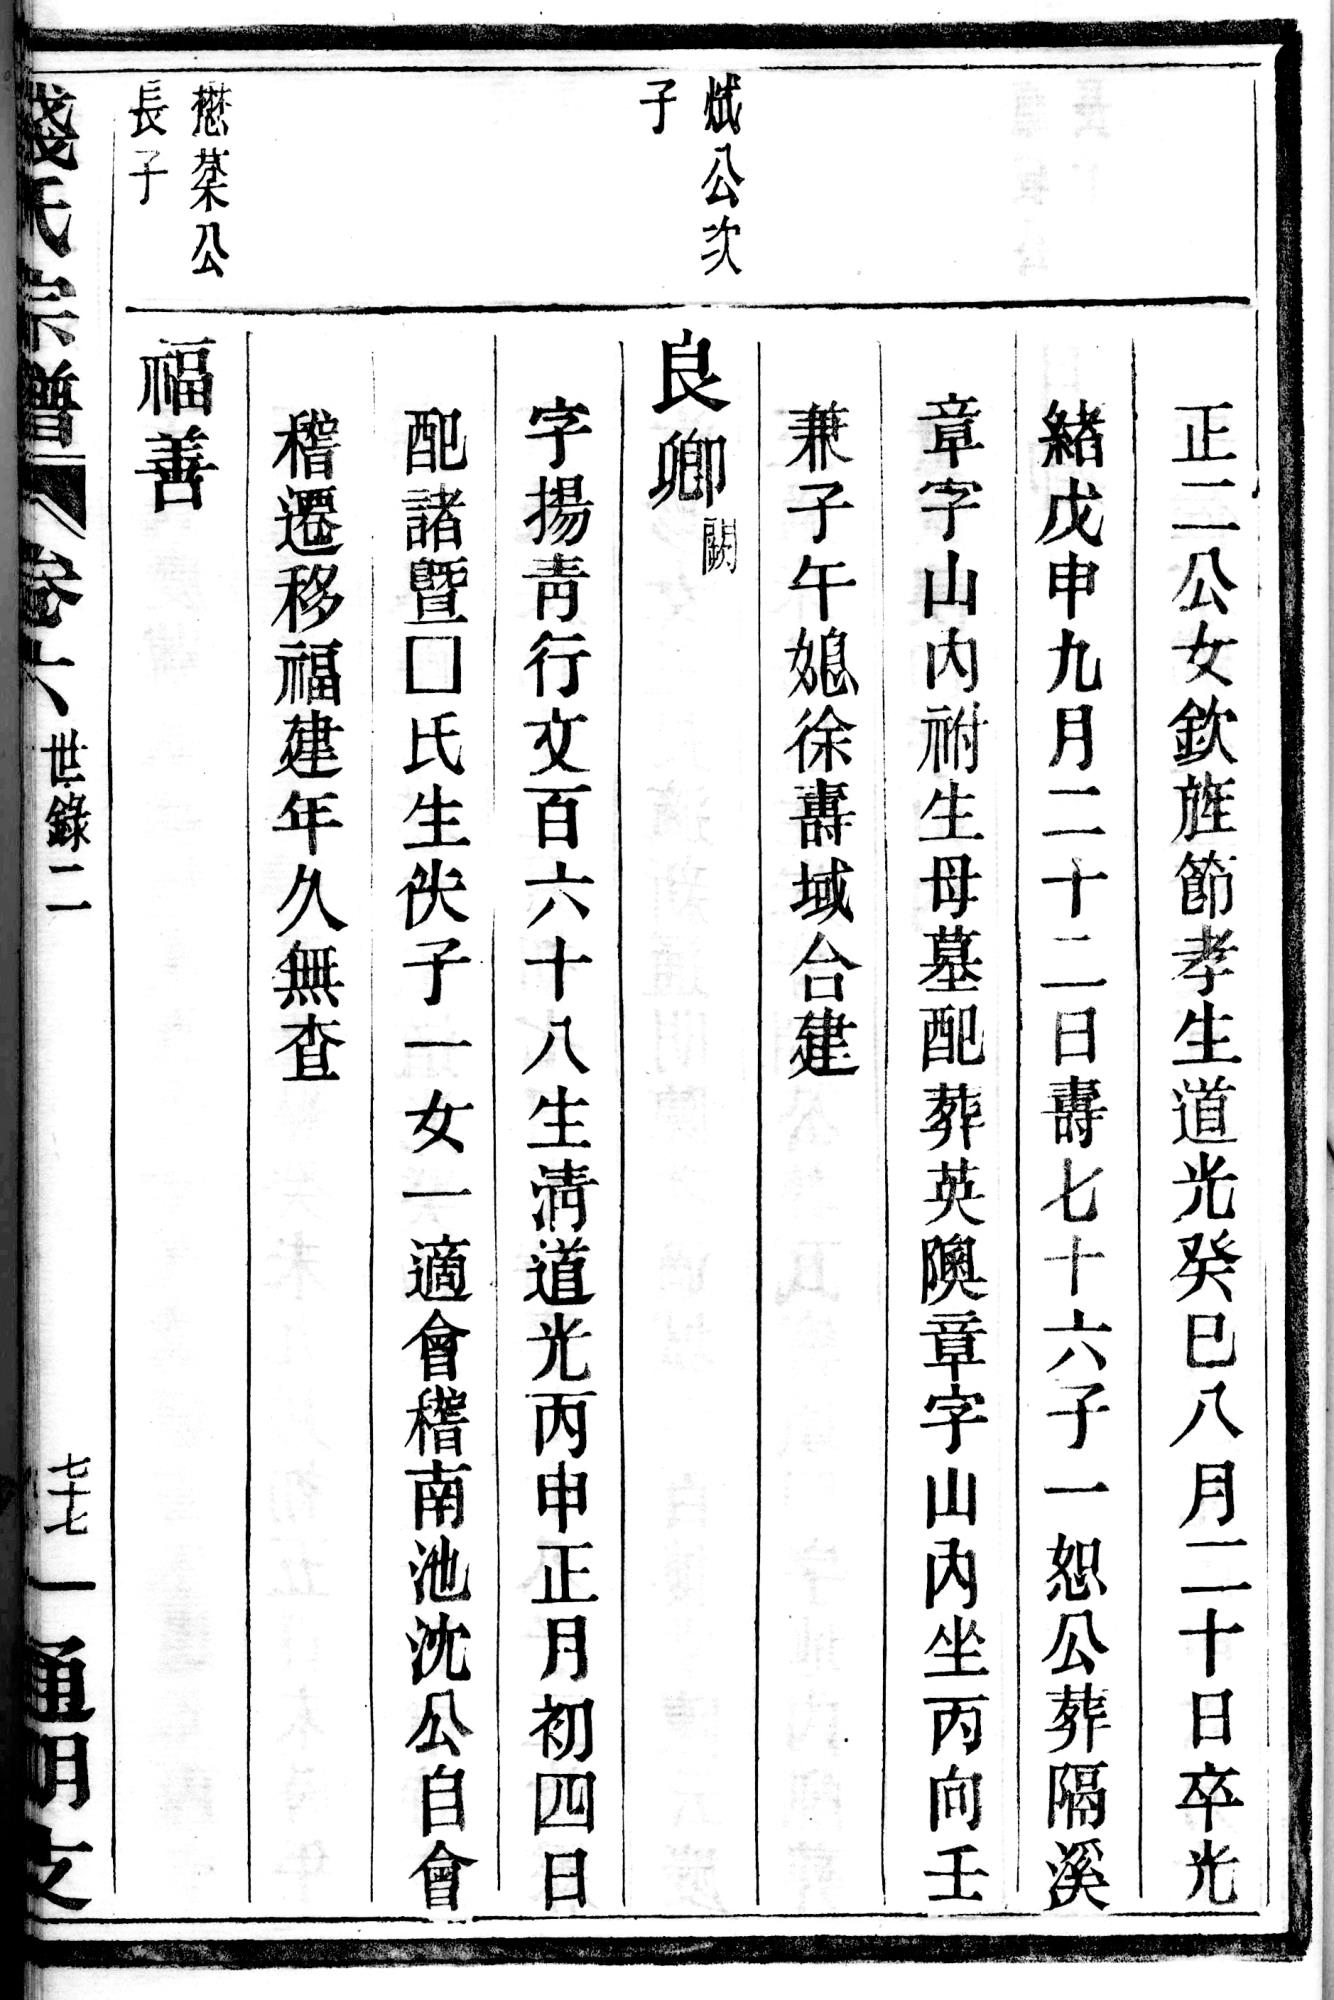 正二公女欽旌節孝生道光癸巳八月二十日卒光
緒戊申九月二十二日壽七十六子一恕公葬隔溪
章字山内祔生母墓配葬英隩章字山内坐丙向壬
兼子午媳徐壽域台建
斌公次
子
良卿闕
字揚青行文百六十八生清道光丙申正月初四日
配諸暨□氏生佚子一女一適會稽南池沈公自會
稽遷移福建年久無査
懋棻公
長子
福善
錢氏宗譜 卷六 世錄二 七十七 一 通明支